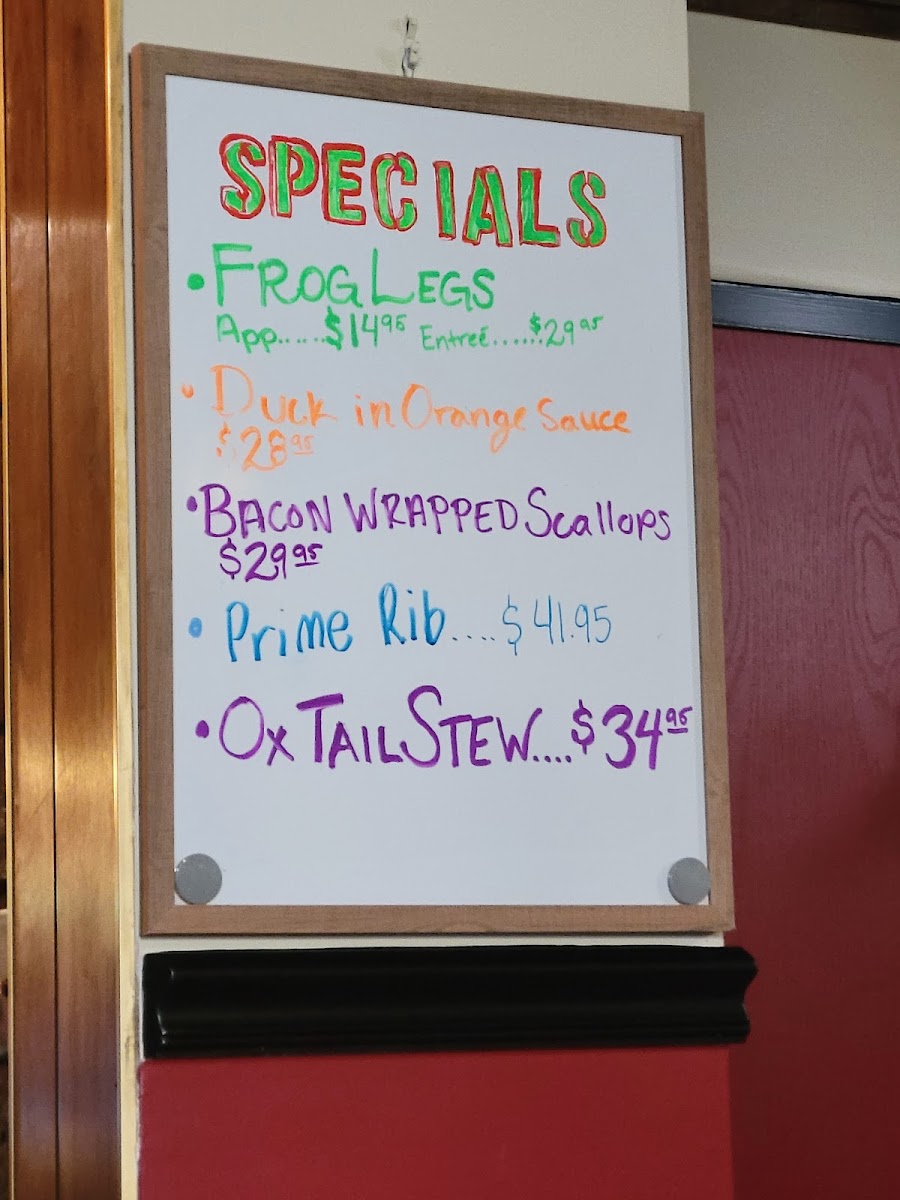 SPECIALS
• FROG LEGS
App.....$14.95 Entreé......$29.95
• Duck in Orange Sauce
$28.95
• BACON WRAPPED Scallops
$29.95
• Prime Rib....$41.95
• OX TAIL STEW....$34.95